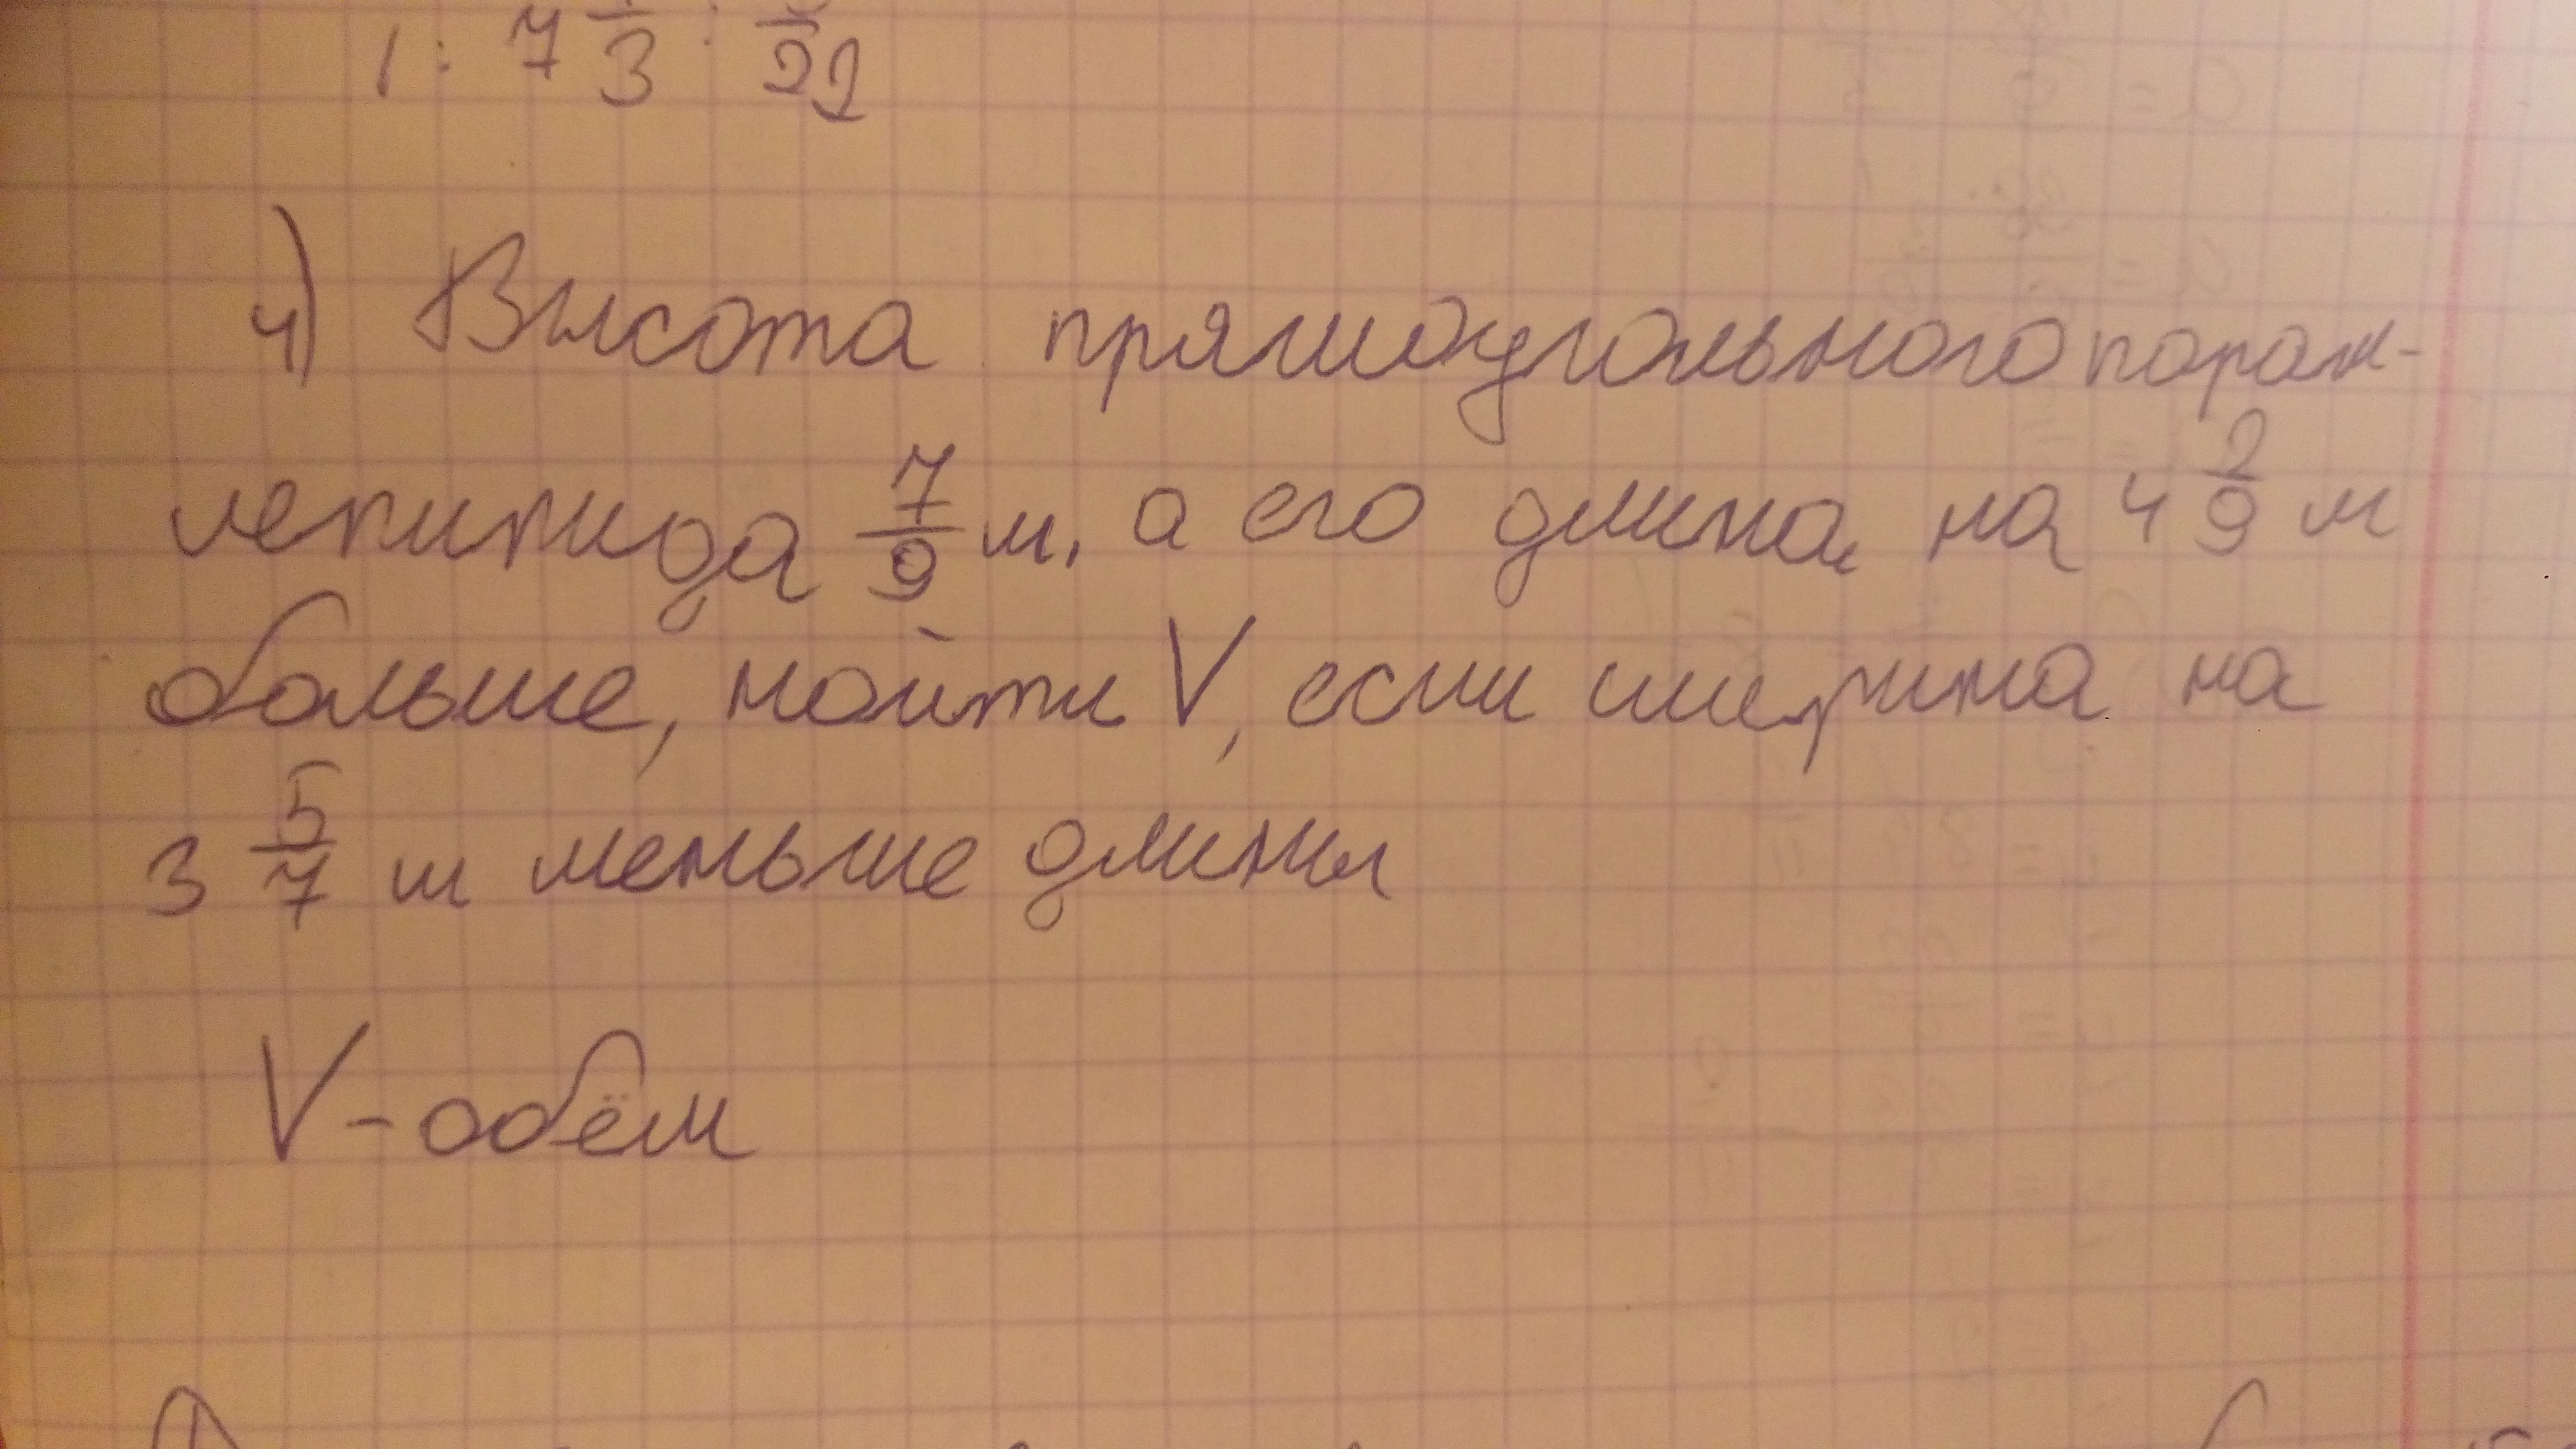 1 : 7 1/3 : 22
4) Высота прямоугольного парал-
лепипида 7/9 м, а его длина на 4 2/9 м
больше, найти V, если ширина на
3 5/7 м меньше длины
V - обём